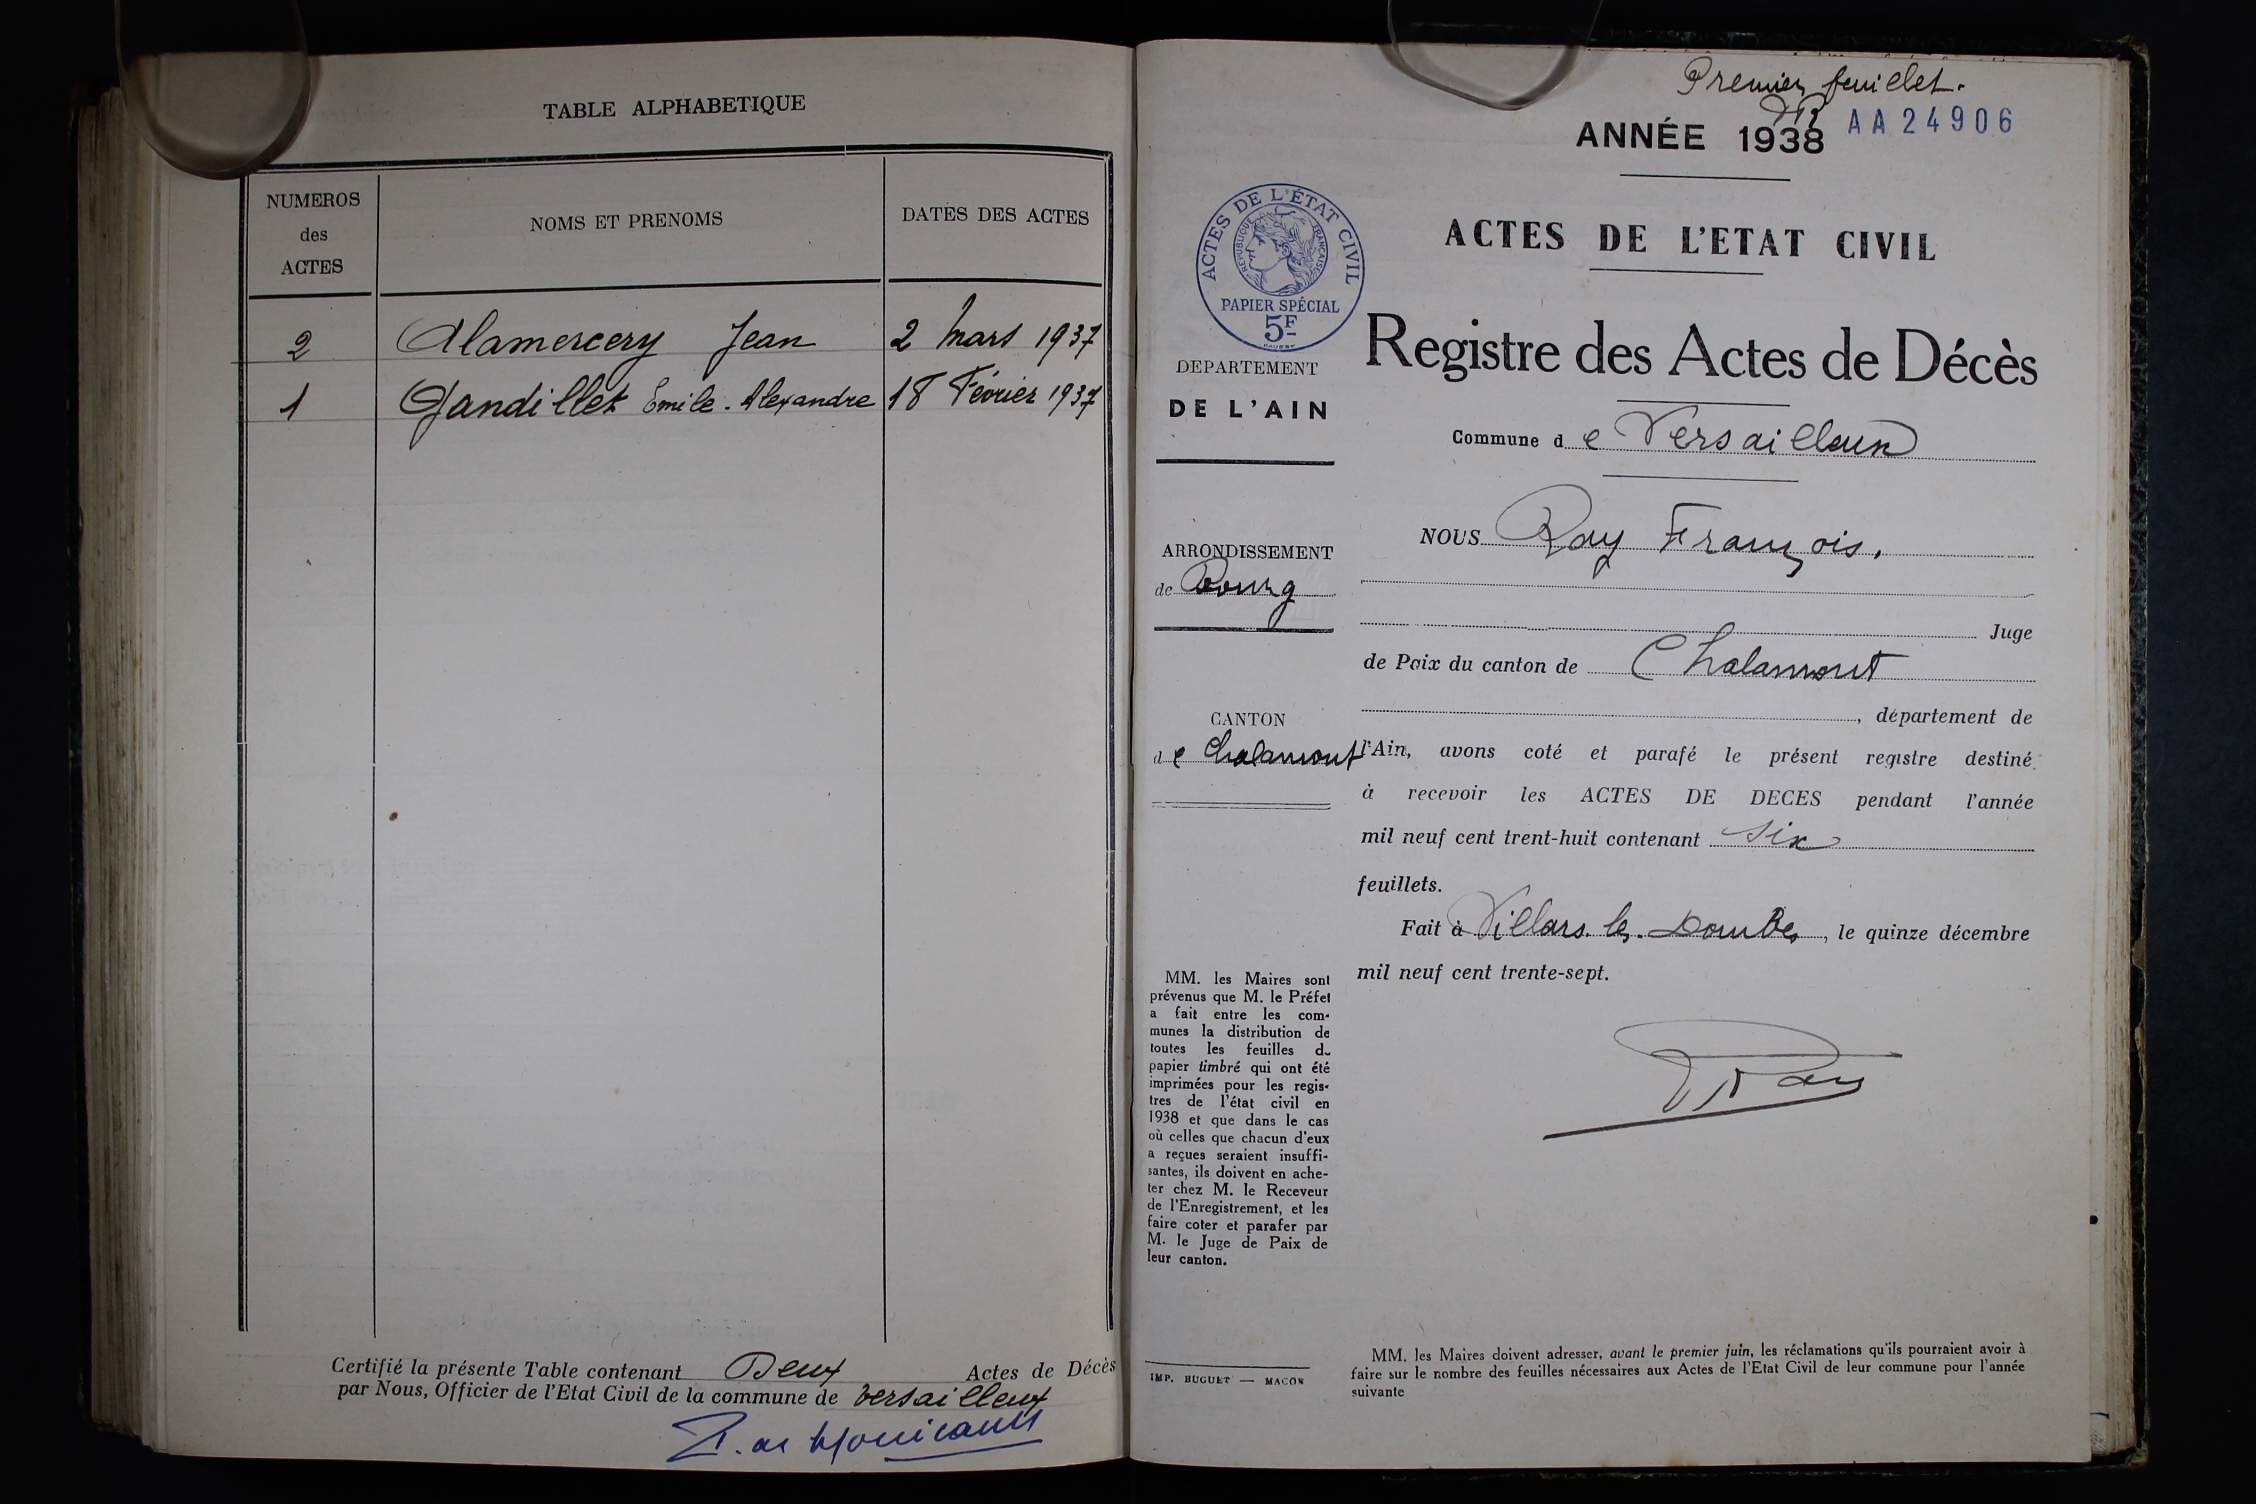 TABLE ALPHABETIQUE
NUMEROS
des
ACTES
NOMS ET PRENOMS
DATES DES ACTES
2 Alamercery Jean 2 Mars 1937
1 Gandillet Emile. Alexandre 18 Février 1937
Certifié la présente Table contenant Deux Actes de Décès
par Nous, Officier de l'Etat Civil de la commune de Versailleux
Premier feuillet.
ANNÉE 1938
AA24906
ACTES DE L'ÉTAT CIVIL
RÉPUBLIQUE FRANÇAISE
PAPIER SPÉCIAL
5F
DEPARTEMENT
DE L'AIN
ARRONDISSEMENT
de Bourg
CANTON
de Chalamont
MM. les Maires sont
prévenus que M. le Préfet
a fait entre les com-
munes la distribution de
toutes les feuilles de
papier timbré qui ont été
imprimées pour les regis-
tres de l'état civil en
1938 et que dans le cas
où celles que chacun d'eux
a reçues seraient insuffi-
santes, ils doivent en ache-
ter chez M. le Receveur
de l'Enregistrement, et les
faire coter et parafer par
M. le Juge de Paix de
leur canton.
IMP. BUGUET — MACON
ACTES DE L'ETAT CIVIL
Registre des Actes de Décès
Commune de Versailleux
NOUS Ray François,
Juge
de Paix du canton de Chalamont
, département de
l'Ain, avons coté et parafé le présent registre destiné
à recevoir les ACTES DE DECES pendant l'année
mil neuf cent trent-huit contenant six
feuillets.
Fait à Villars. les. Dombes, le quinze décembre
mil neuf cent trente-sept.
Ray
MM. les Maires doivent adresser, avant le premier juin, les réclamations qu'ils pourraient avoir à
faire sur le nombre des feuilles nécessaires aux Actes de l'Etat Civil de leur commune pour l'année
suivante